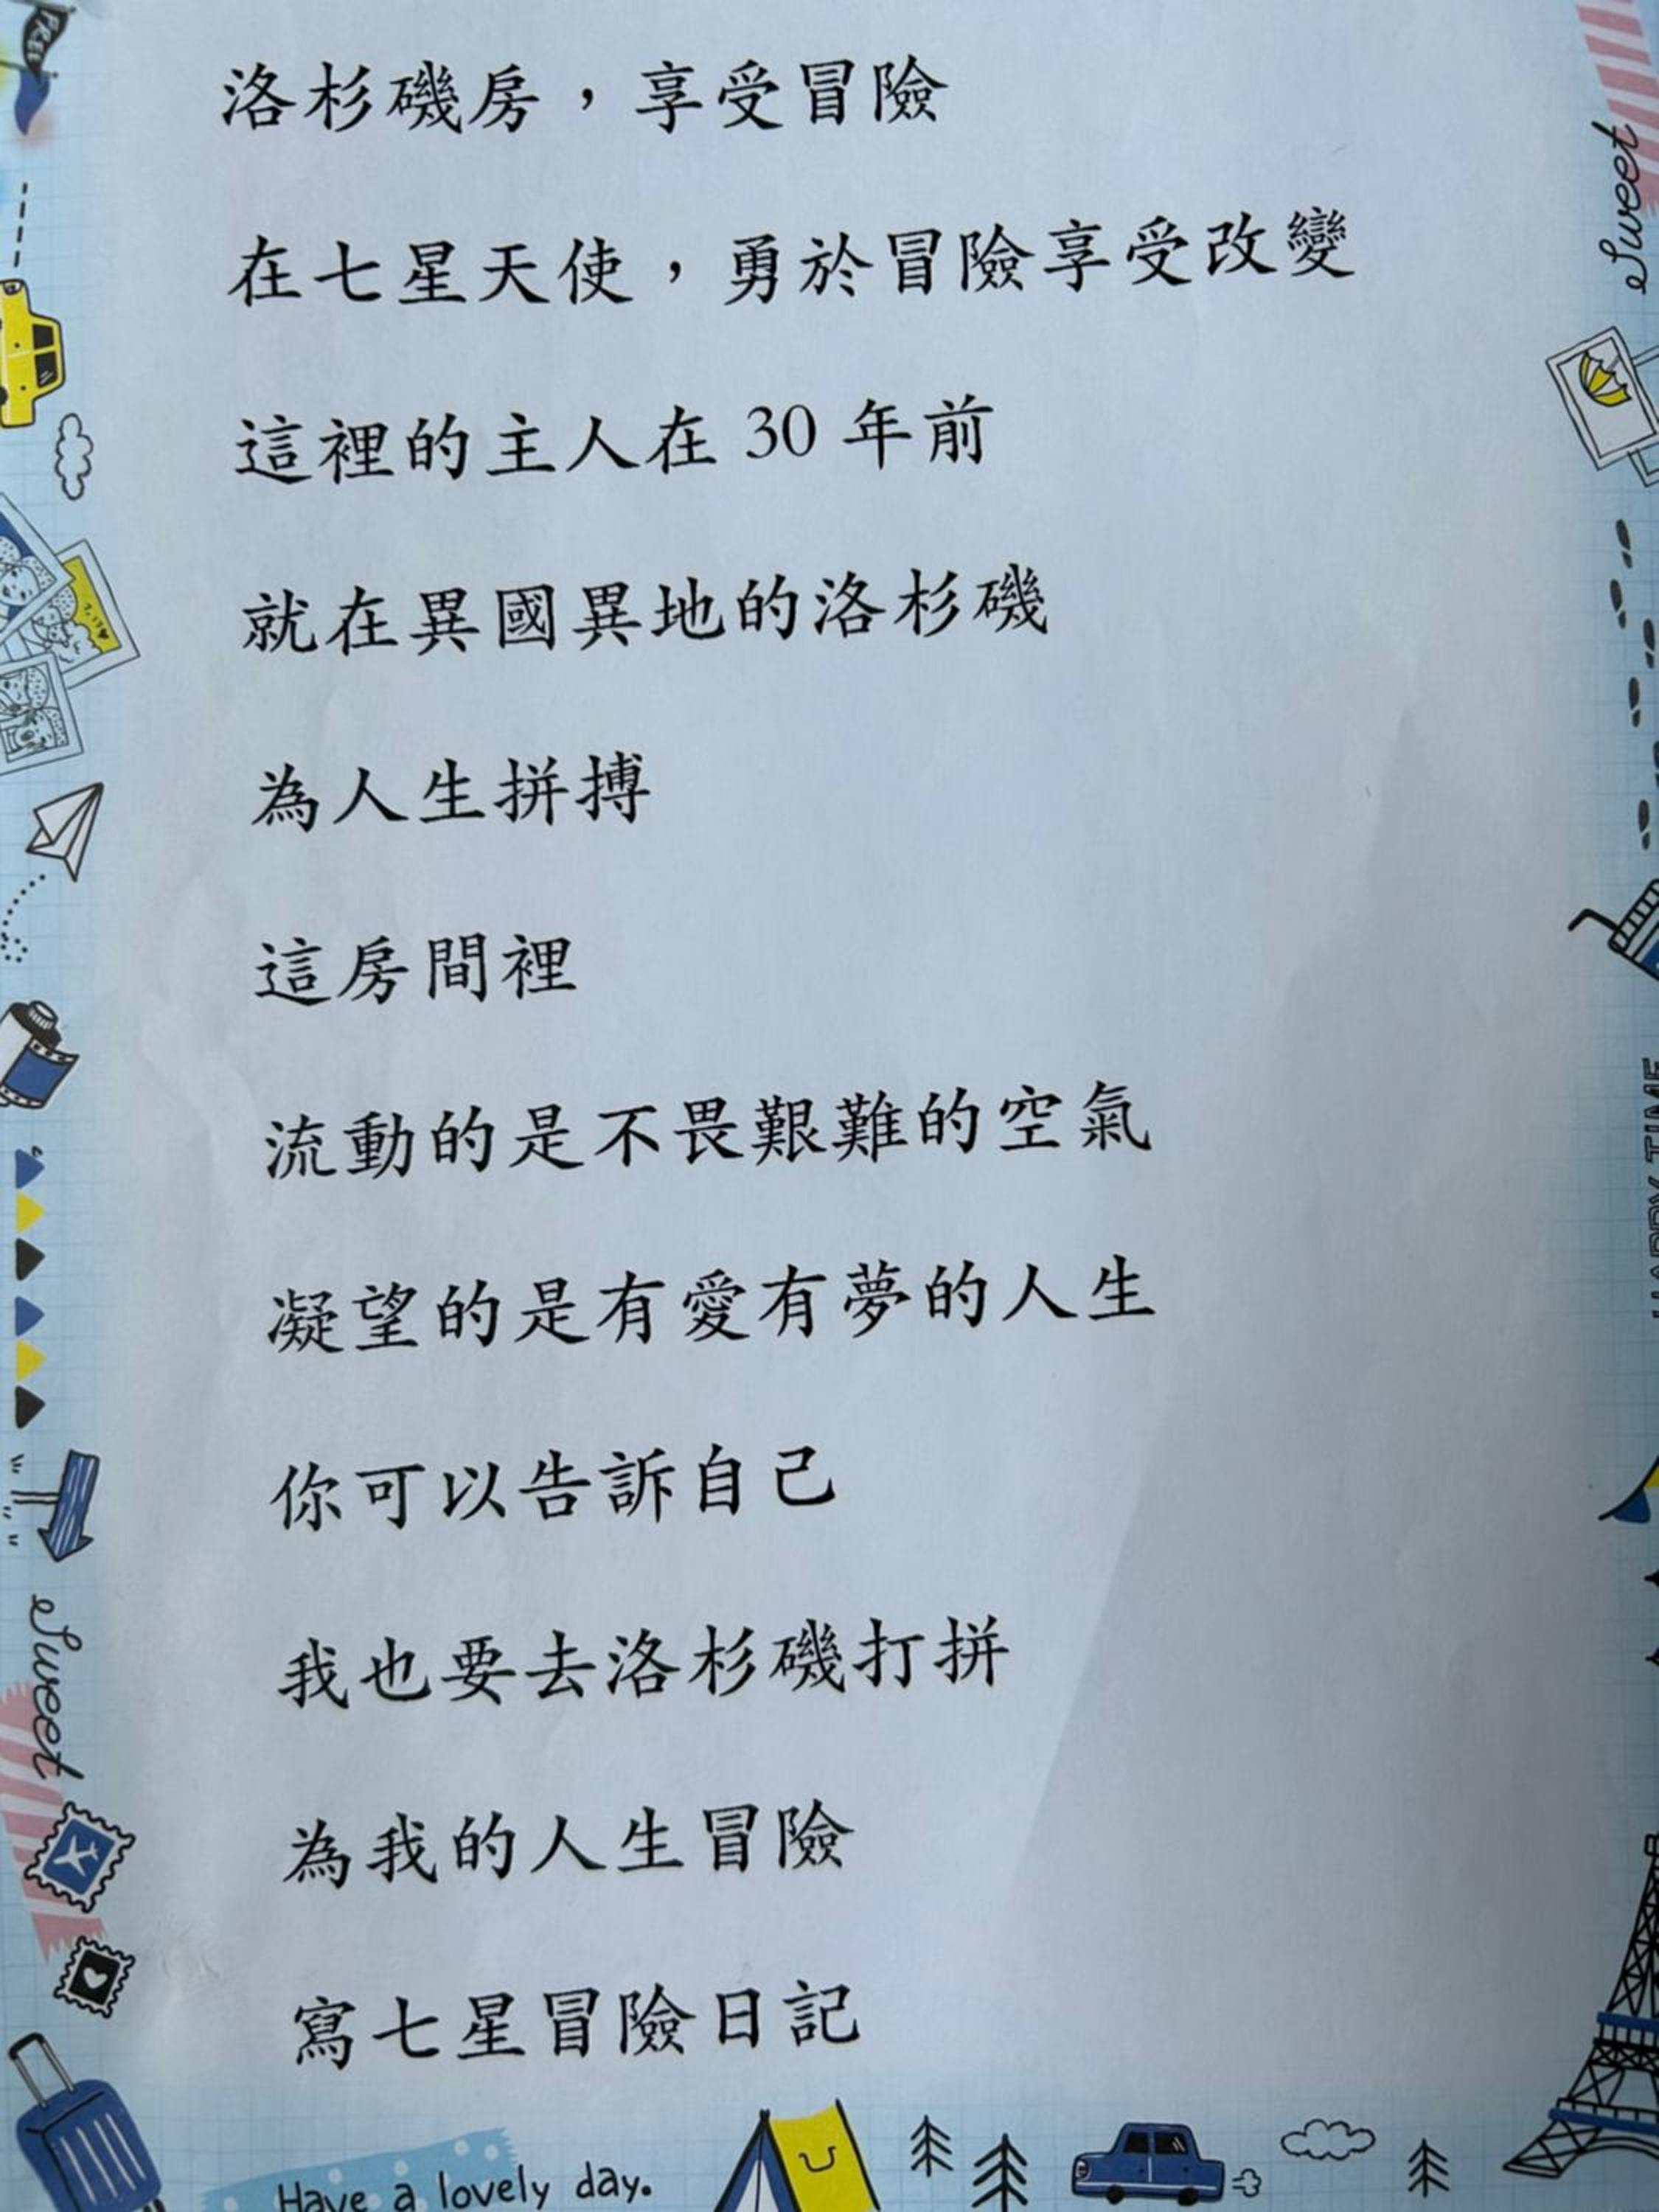 洛杉磯房，享受冒險
在七星天使，勇於冒險享受改變
這裡的主人在 30 年前
就在異國異地的洛杉磯
為人生拼搏
這房間裡
流動的是不畏艱難的空氣
凝望的是有愛有夢的人生
你可以告訴自己
我也要去洛杉磯打拼
為我的人生冒險
寫七星冒險日記
FREE
Sweet
Sweet
HAPPY TIME
Have a lovely day.